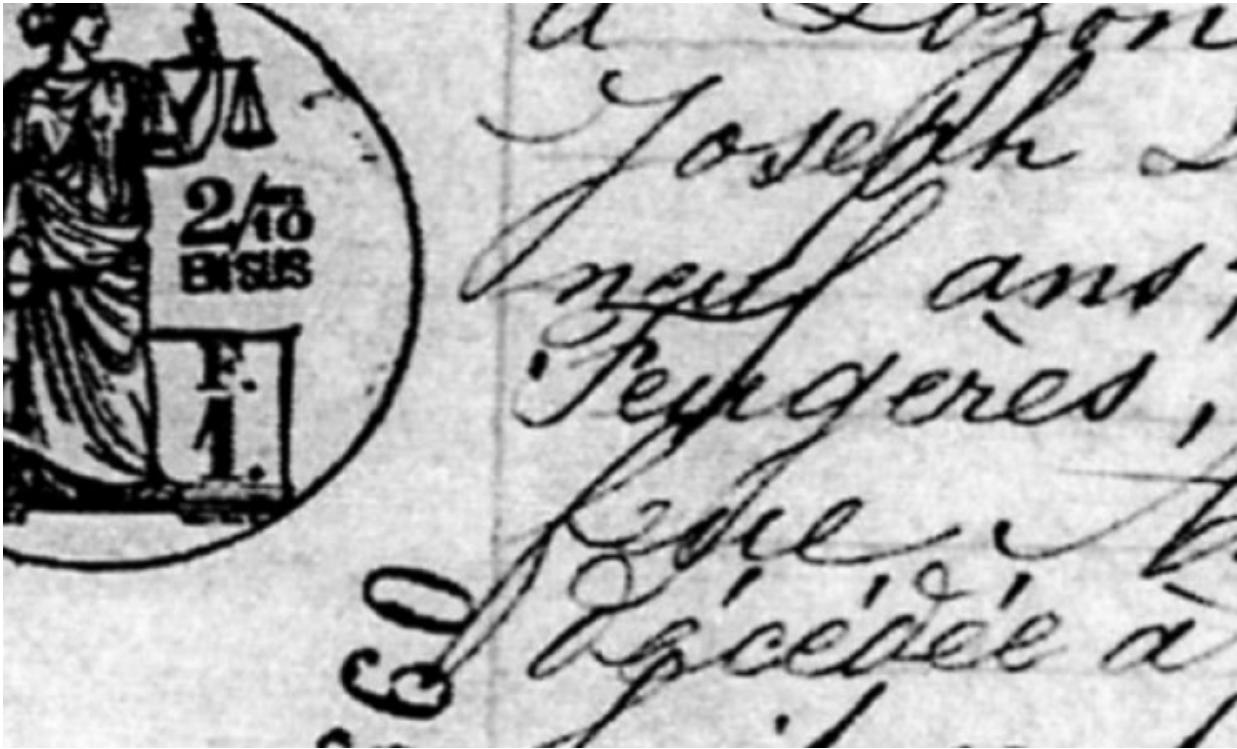 2/m 10
EN SUS
F.
1.
60
à Lozon
Joseph
neuf ans,
Feugères,
décédée à